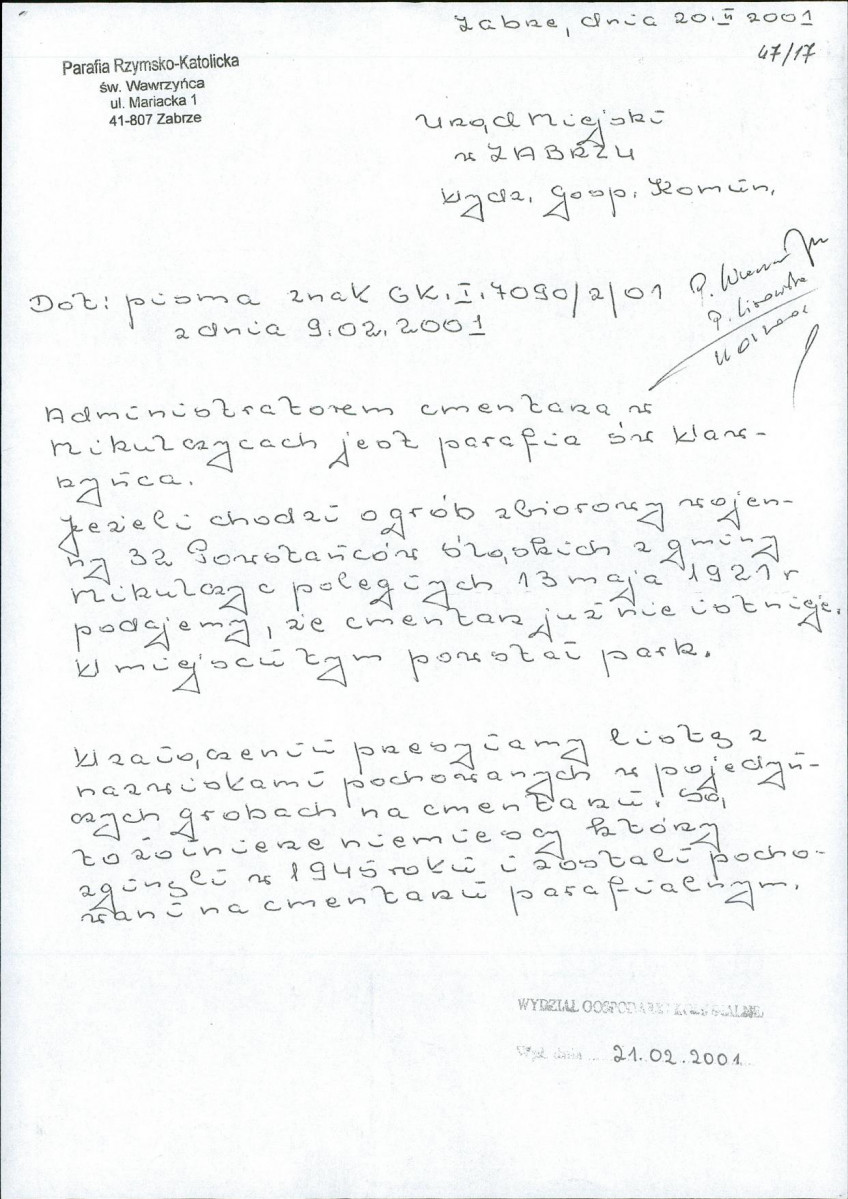 Zabrze, dnia 20.II 2001
47/17
Parafia Rzymsko-Katolicka
św. Wawrzyńca
ul. Mariacka 1
41-807 Zabrze
Urząd Miejski
w ZABRZU
Wydz. Gosp. Komun.
Dot: pisma znak GK.I.7090/2/01
z dnia 9.02.2001
P.
P. Lisowska
Administratorem cmentarza w
Mikulczycach jest parafia św Waw-
rzyńca.
Jeżeli chodzi o grób zbiorowy wojen-
ny 32 Powstańców Śląskich z gminy
Mikulczyc poległych 13 maja 1921 r
podajemy, że cmentarz już nie istnieje.
W miejscu tym powstał park.
W załączeniu przesyłamy listę z
nazwiskami pochowanych w pojedyń-
czych grobach na cmentarzu. Są
to żołnierze niemieccy którzy
zginęli w 1945 roku i zostali pocho-
wani na cmentarzu parafialnym.
WYDZIAŁ GOSPODARKI KOMUNALNEJ
Wpł. dnia 21.02.2001